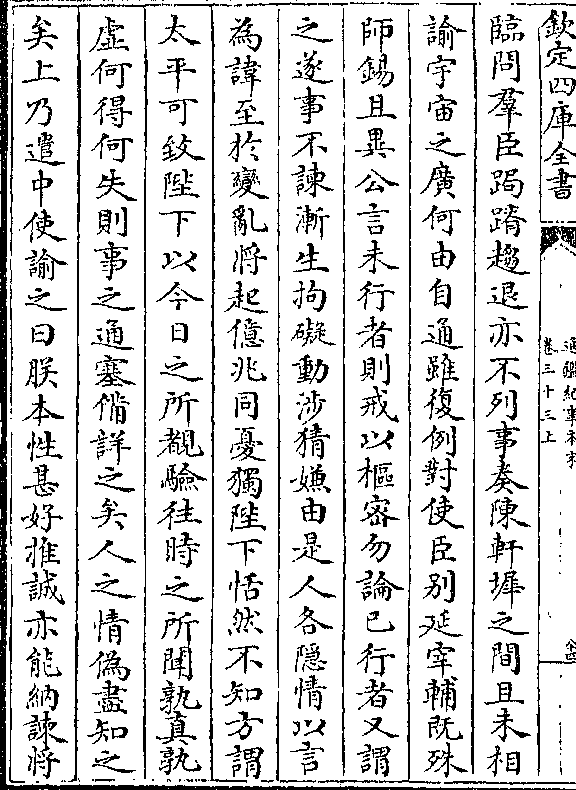 欽定四庫全書
通鑑紀事本末
卷三十三上
臨問羣臣跼蹐趨退亦不列事奏陳軒墀之間且未相
諭宇宙之廣何由自通雖復例對使臣别延宰輔既殊
師錫且異公言未行者則戒以樞密勿論已行者又謂
之遂事不諫漸生拘礙動涉猜嫌由是人各隱情以言
為諱至於變亂將起億兆同憂獨陛下恬然不知方謂
太平可致陛下以今日之所覩驗往時之所聞孰真孰
虛何得何失則事之通塞備詳之矣人之情偽盡知之
矣上乃遣中使諭之曰朕本性甚好推誠亦能納諫將